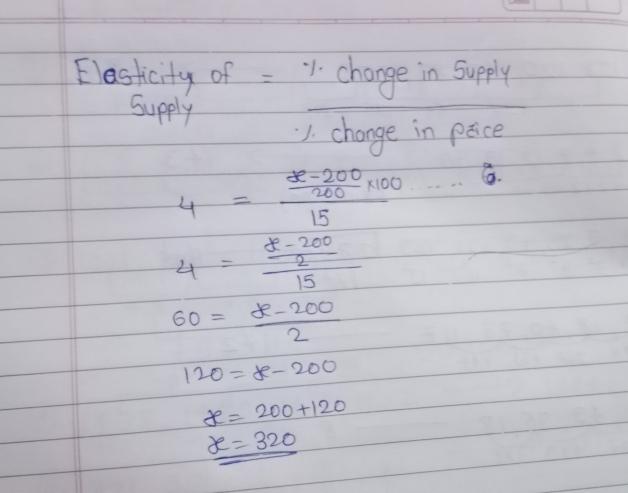 Elasticity of Supply = % change in Supply / % change in price
4 = x-200/200 ×100 ..... / 15
4 = x-200/2 / 15
60 = x-200/2
120 = x-200
x = 200+120
x = 320